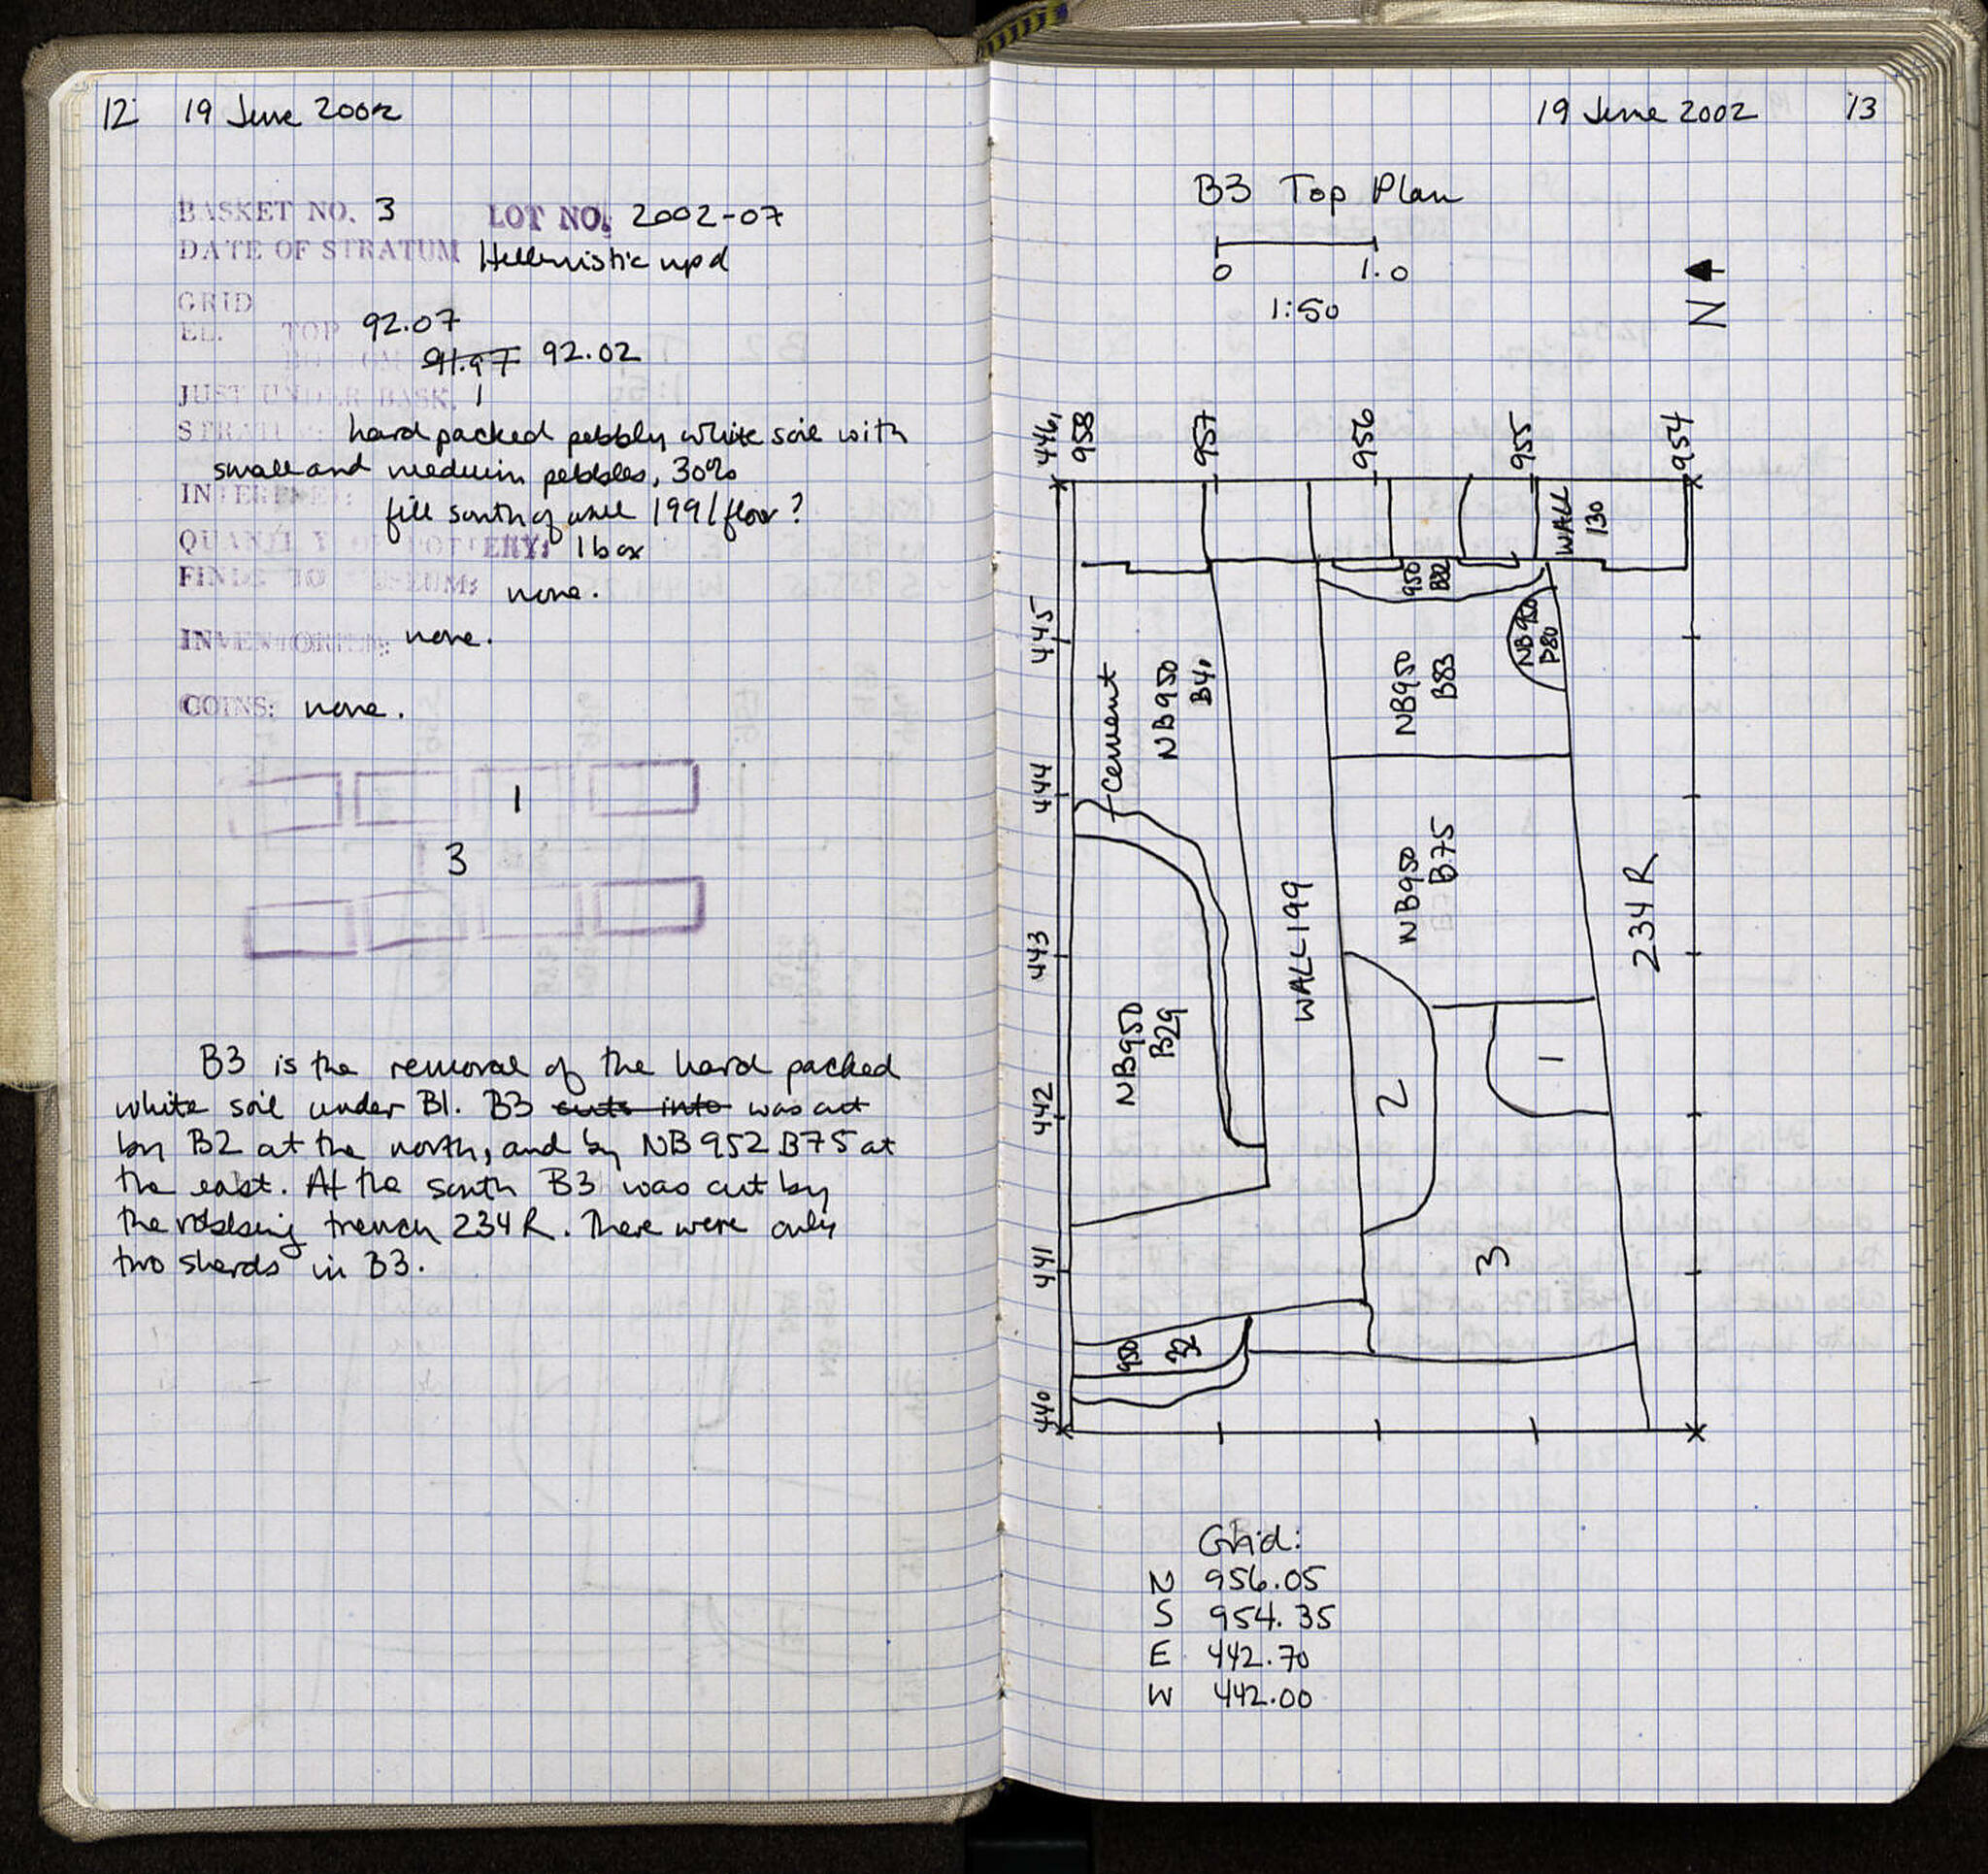 12 19 June 2002
BASKET NO. 3 LOT NO. 2002-07
DATE OF STRATUM Hellenistic upd
GRID
EL. TOP 92.07
BOTTOM 91.97 92.02
JUST UNDER BASK. 1
STRATUM: hard packed pebbly white soil with
small and medium pebbles, 30%
fill south of wall 199/floor?
QUANTITY OF POTTERY: 1 box
FINDS TO MUSEUM: none.
INVENTORIED: none.
COINS: none.
1
3
B3 is the removal of the hard packed
white soil under B1. B3 cuts into was cut
by B2 at the north, and by NB 952 B75 at
the east. At the south B3 was cut by
the robbing trench 234R. There were only
two sherds in B3.
19 June 2002 13
B3 Top Plan
0 1.0
1:50
N
446,
958
957
956
955
954
WALL
130
950
B82
NB 950
P80
445
444
443
442
441
440
cement
NB950
B41
NB950
B83
NB950
B75
WALL 199
234 R
NB950
B29
2
1
3
950
32
Grid:
N 956.05
S 954.35
E 442.70
W 442.00